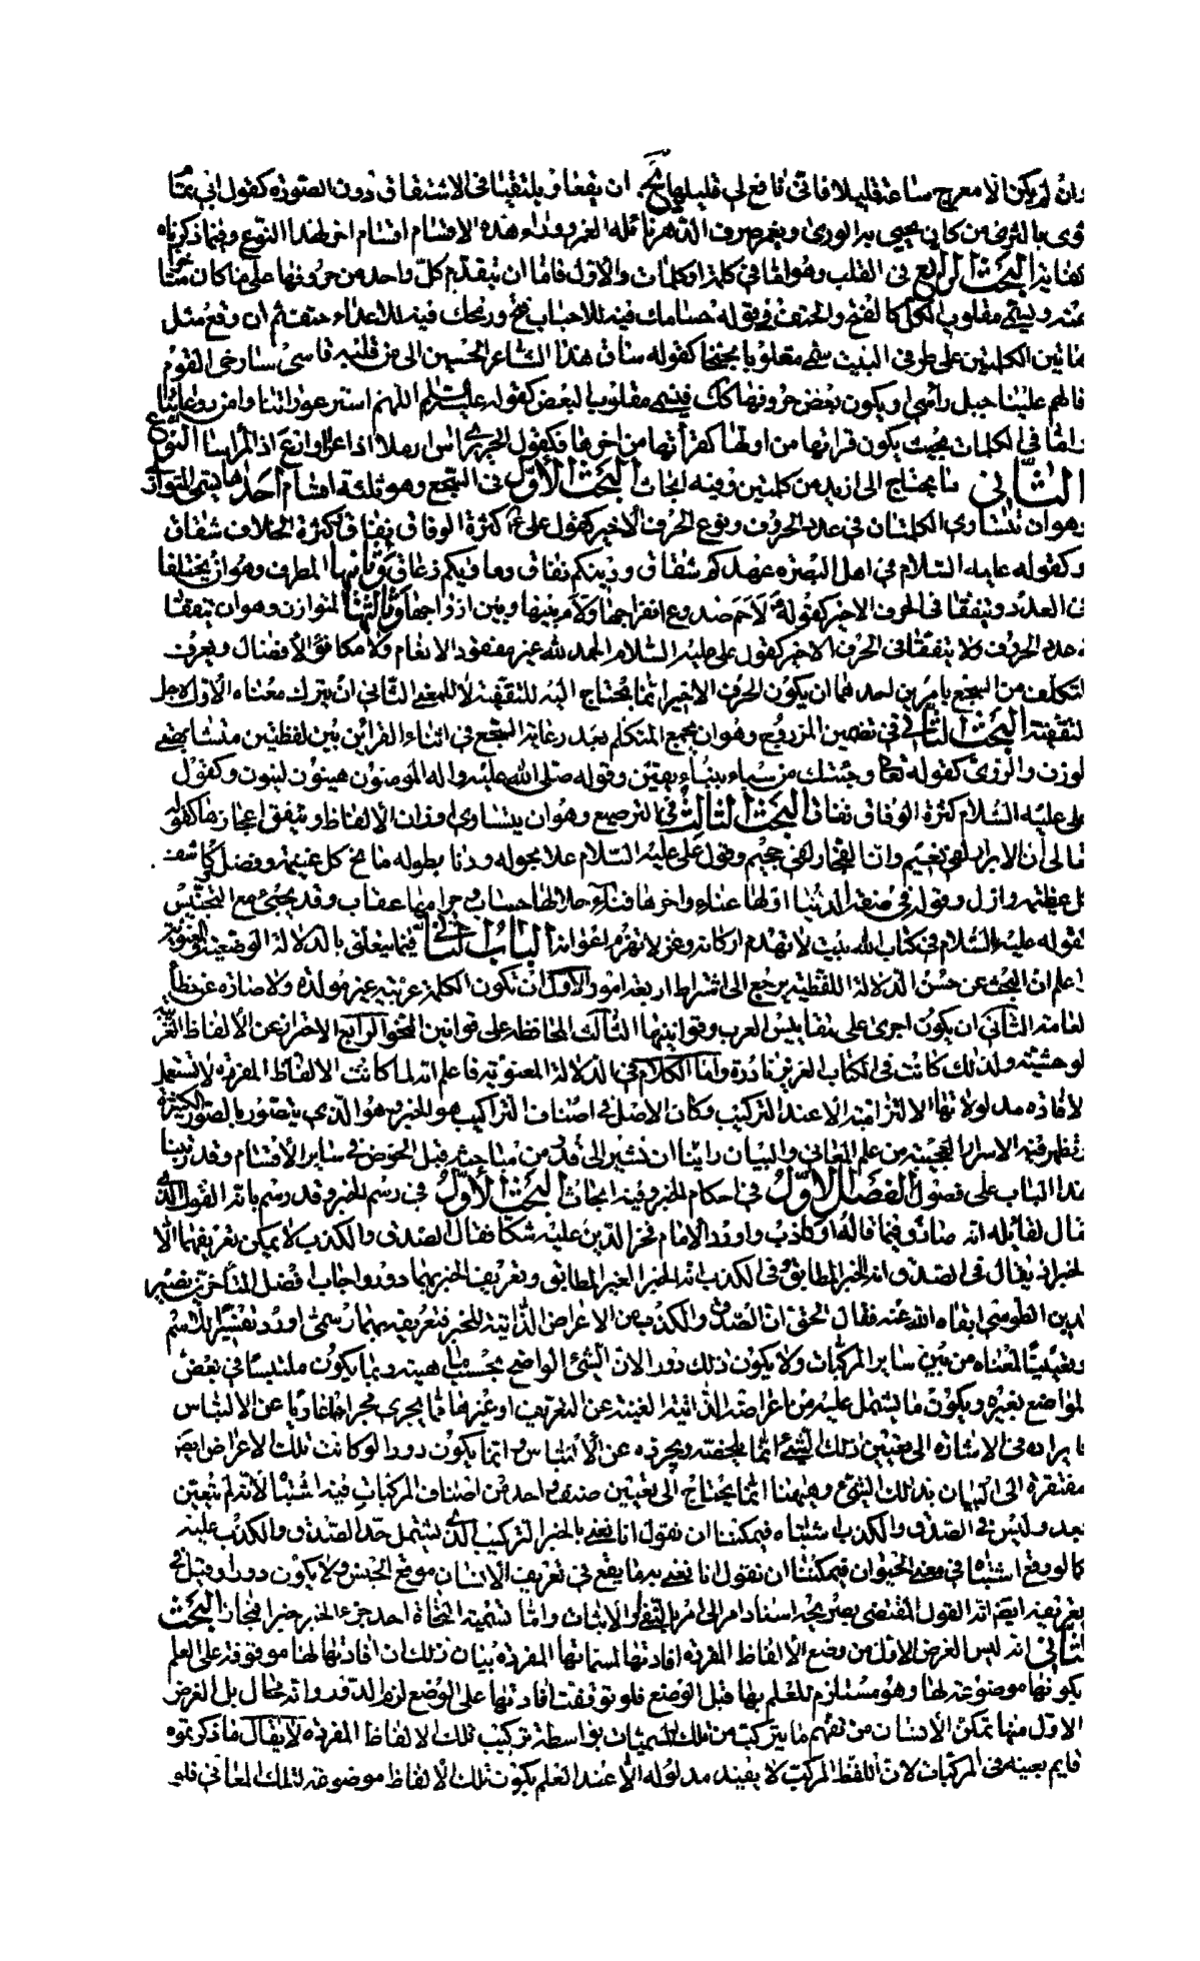 وان لم يكن الا معرج ساعة قليلا فاني نافع لي قليلها ان يقعا و يلتقيا في الاشتقاق دون الصورة كقول ابي تمام
ثوى بالثرى من كان يحيى به الورى ويغمر صرف الدهر نائله الغمر وراء هذه الاقسام اقسام اخر لهذا النوع وفيما ذكرناه
كفاية البحث الرابع في القلب وهو اما في كلمة او كلمات والاول فاما ان يتقدم كل واحد من حروفها على ما كان متاخرا
عنه ويسمى مقلوب الكل كالفتح والحتف في قوله حسامك فيه للاحباب فتح ورمحك فيه للاعداء حتف ثم ان وقع مثل
هاتين الكلمتين على طرفي البيت سمي مقلوبا مجنحا كقوله ساق هذا الشاعر الحسين الى من قلبه قاسى سار حي القوم
فالهم علينا جبل راسي او يكون بعض حروفها كك فيسمى مقلوب البعض كقوله عليه السلم اللهم استر عوراتنا وامن روعاتنا
واما في الكلمات بحيث يكون قراءتها من اولها كقراءتها من اخرها فكقول الحريري اس ارملا اذا عرا وارع اذا المرأ اسا النوع
الثاني ما يحتاج الى ازيد من كلمتين وفيه ابحاث البحث الاول في السجع وهو ثلثة اقسام احدها يسمى المتوازي
وهو ان تتساوى الكلمتان في عدد الحروف ونوع الحرف الاخير كقول علي ع كثرة الوفاق نفاق وكثرة الخلاف شقاق
وكقوله عليه السلام في اهل البصرة عهدكم شقاق ودينكم نفاق وماؤكم زعاق وثانيها المطرف وهو ان يختلفا
في العدد ويتفقا في الحرف الاخير كقوله لا حم صدوع انفراجها ولاءم بينها وبين ازواجها وثالثها المتوازن وهو ان يتفقا
في عدد الحروف ولا يتفقا في الحرف الاخير كقول علي عليه السلام الحمد لله غير مفقود الانعام ولا مكافؤ الافضال ويعرف
التكلف من السجع بامرين احدهما ان يكون الحرف الاخير انما يحتاج اليه للتقفية لا للمعنى الثاني ان يترك معناه الاول لاجل
التقفية البحث الثاني في تضمين المزدوج وهو ان يجمع المتكلم بعد رعاية السجع في اثناء القرائن بين لفظتين متشابهتي
الوزن والروي كقوله تعالى وجئتك من سباء بنباء يقين وقوله صلى الله عليه واله المؤمنون هينون لينون وكقول
علي عليه السلام كثرة الوفاق نفاق البحث الثالث في الترصيع وهو ان يتساوى اوزان الالفاظ ويتفق اعجازها كقوله
تعالى ان الابرار لفي نعيم وان الفجار لفي جحيم وقول علي عليه السلام علا بحوله ودنا بطوله مانح كل غنيمة وفضل كاشف
كل عظيمة وازل وقوله في صفة الدنيا اولها عناء واخرها فناء في حلالها حساب وفي حرامها عقاب وقد يجئ مع التجنيس
كقوله عليه السلام في كتاب الله بيت لا تهدم اركانه وعز لا تهزم اعوانه الباب الثاني فيما يتعلق بالدلالة الوضعية والمعنوية
اعلم ان البحث عن حسن الدلالة اللفظية يرجع الى اشراط اربعة امور الاول ان تكون الكلمة عربية غير مولدة ولا صادرة عن خطأ
العامة الثاني ان يكون اجرى على مقاييس العرب وقوانينها الثالث المحافظة على قوانين النحو الرابع الاحتراز عن الالفاظ الغريبة
الوحشية ولذلك كانت في الكتاب العزيز نادرة واما الكلام في الدلالة المعنوية فاعلم انه لما كانت الالفاظ المفردة لا تستعمل
لافادة مدلولاتها الا لتزامية الا عند التركيب وكان الاصل في اصناف التراكيب هو الخبر وهو الذي يتصور بالصور الكثيرة
وتظهر فيه الاسرار العجيبة من علم المعاني والبيان راينا ان نشير الى نبذ من مباحثه قبل الخوض في ساير الاقسام وقد رتبنا
هذا الباب على فصول الفصل الاول في احكام الخبر وفيه ابحاث البحث الاول في رسم الخبر وقد رسم بانه القول الذي
يقال لقائله انه صادق فيما قاله او كاذب واورد الامام فخر الدين عليه شكا فقال الصدق والكذب لا يمكن تعريفهما الا
بالخبر اذ يقال في الصدق انه الخبر المطابق وفي الكذب انه الخبر الغير المطابق وتعريف الخبر بهما دور واجاب افضل المتاخرين نصير
الدين الطوسي ابقاه الله عنه فقال الحق ان الصدق والكذب من الاعراض الذاتية للخبر فتعريفه بهما رسمي اورد تفسيرا للاسم
وتعيينا لمعناه من بين ساير المركبات ولا يكون ذلك دورا لان الشئ الواضح بحسب ماهيته ربما يكون ملتبسا في بعض
المواضع بغيره ويكون ما يشتمل عليه من اعراضه الذاتية الغنية عن التعريف او غيرها مما يجري مجراها عاريا عن الالتباس
فايراده في الاشارة الى تعيين ذلك الشئ انما يلخصه ويجرده عن الالتباس وانما يكون دورا لو كانت تلك الاعراض ايضا
مفتقرة الى البيان بذلك الشئ وهيهنا انما يحتاج الى تعيين صنف واحد من اصناف المركبات فيه اشتباه لانه لم يتعين
بعد وليس في الصدق والكذب اشتباه فيمكننا ان نقول انا نعني بالخبر التركيب الذي يشتمل حد الصدق والكذب عليه
كما لو وقع اشتباه في معنى الحيوان فيمكننا ان نقول انا نعني به ما يقع في تعريف الانسان موقع الجنس ولا يكون دورا وقيل في
تعريفه ايضا انه القول المقتضي بصريحه اسناد امر الى امر بالنفي او الاثبات واما تسمية النحاة احد جزئي الخبر خبرا فمجاز البحث
الثاني انه ليس الغرض الاول من وضع الالفاظ المفردة افادتها لمسمياتها المفردة بيان ذلك ان افادتها لها موقوفة على العلم
بكونها موضوعة لها وهو مستلزم للعلم بها قبل الوضع فلو توقفت افادتها على الوضع لزم الدور وانه محال بل الغرض
الاول منها تمكن الانسان من تفهم ما يتركب من تلك المسميات بواسطة تركيب تلك الالفاظ المفردة لا يقال ما ذكرتموه
قايم بعينه في المركبات لان اللفظ المركب لا يفيد مدلوله الا عند العلم بكون تلك الالفاظ موضوعة لتلك المعاني فلو